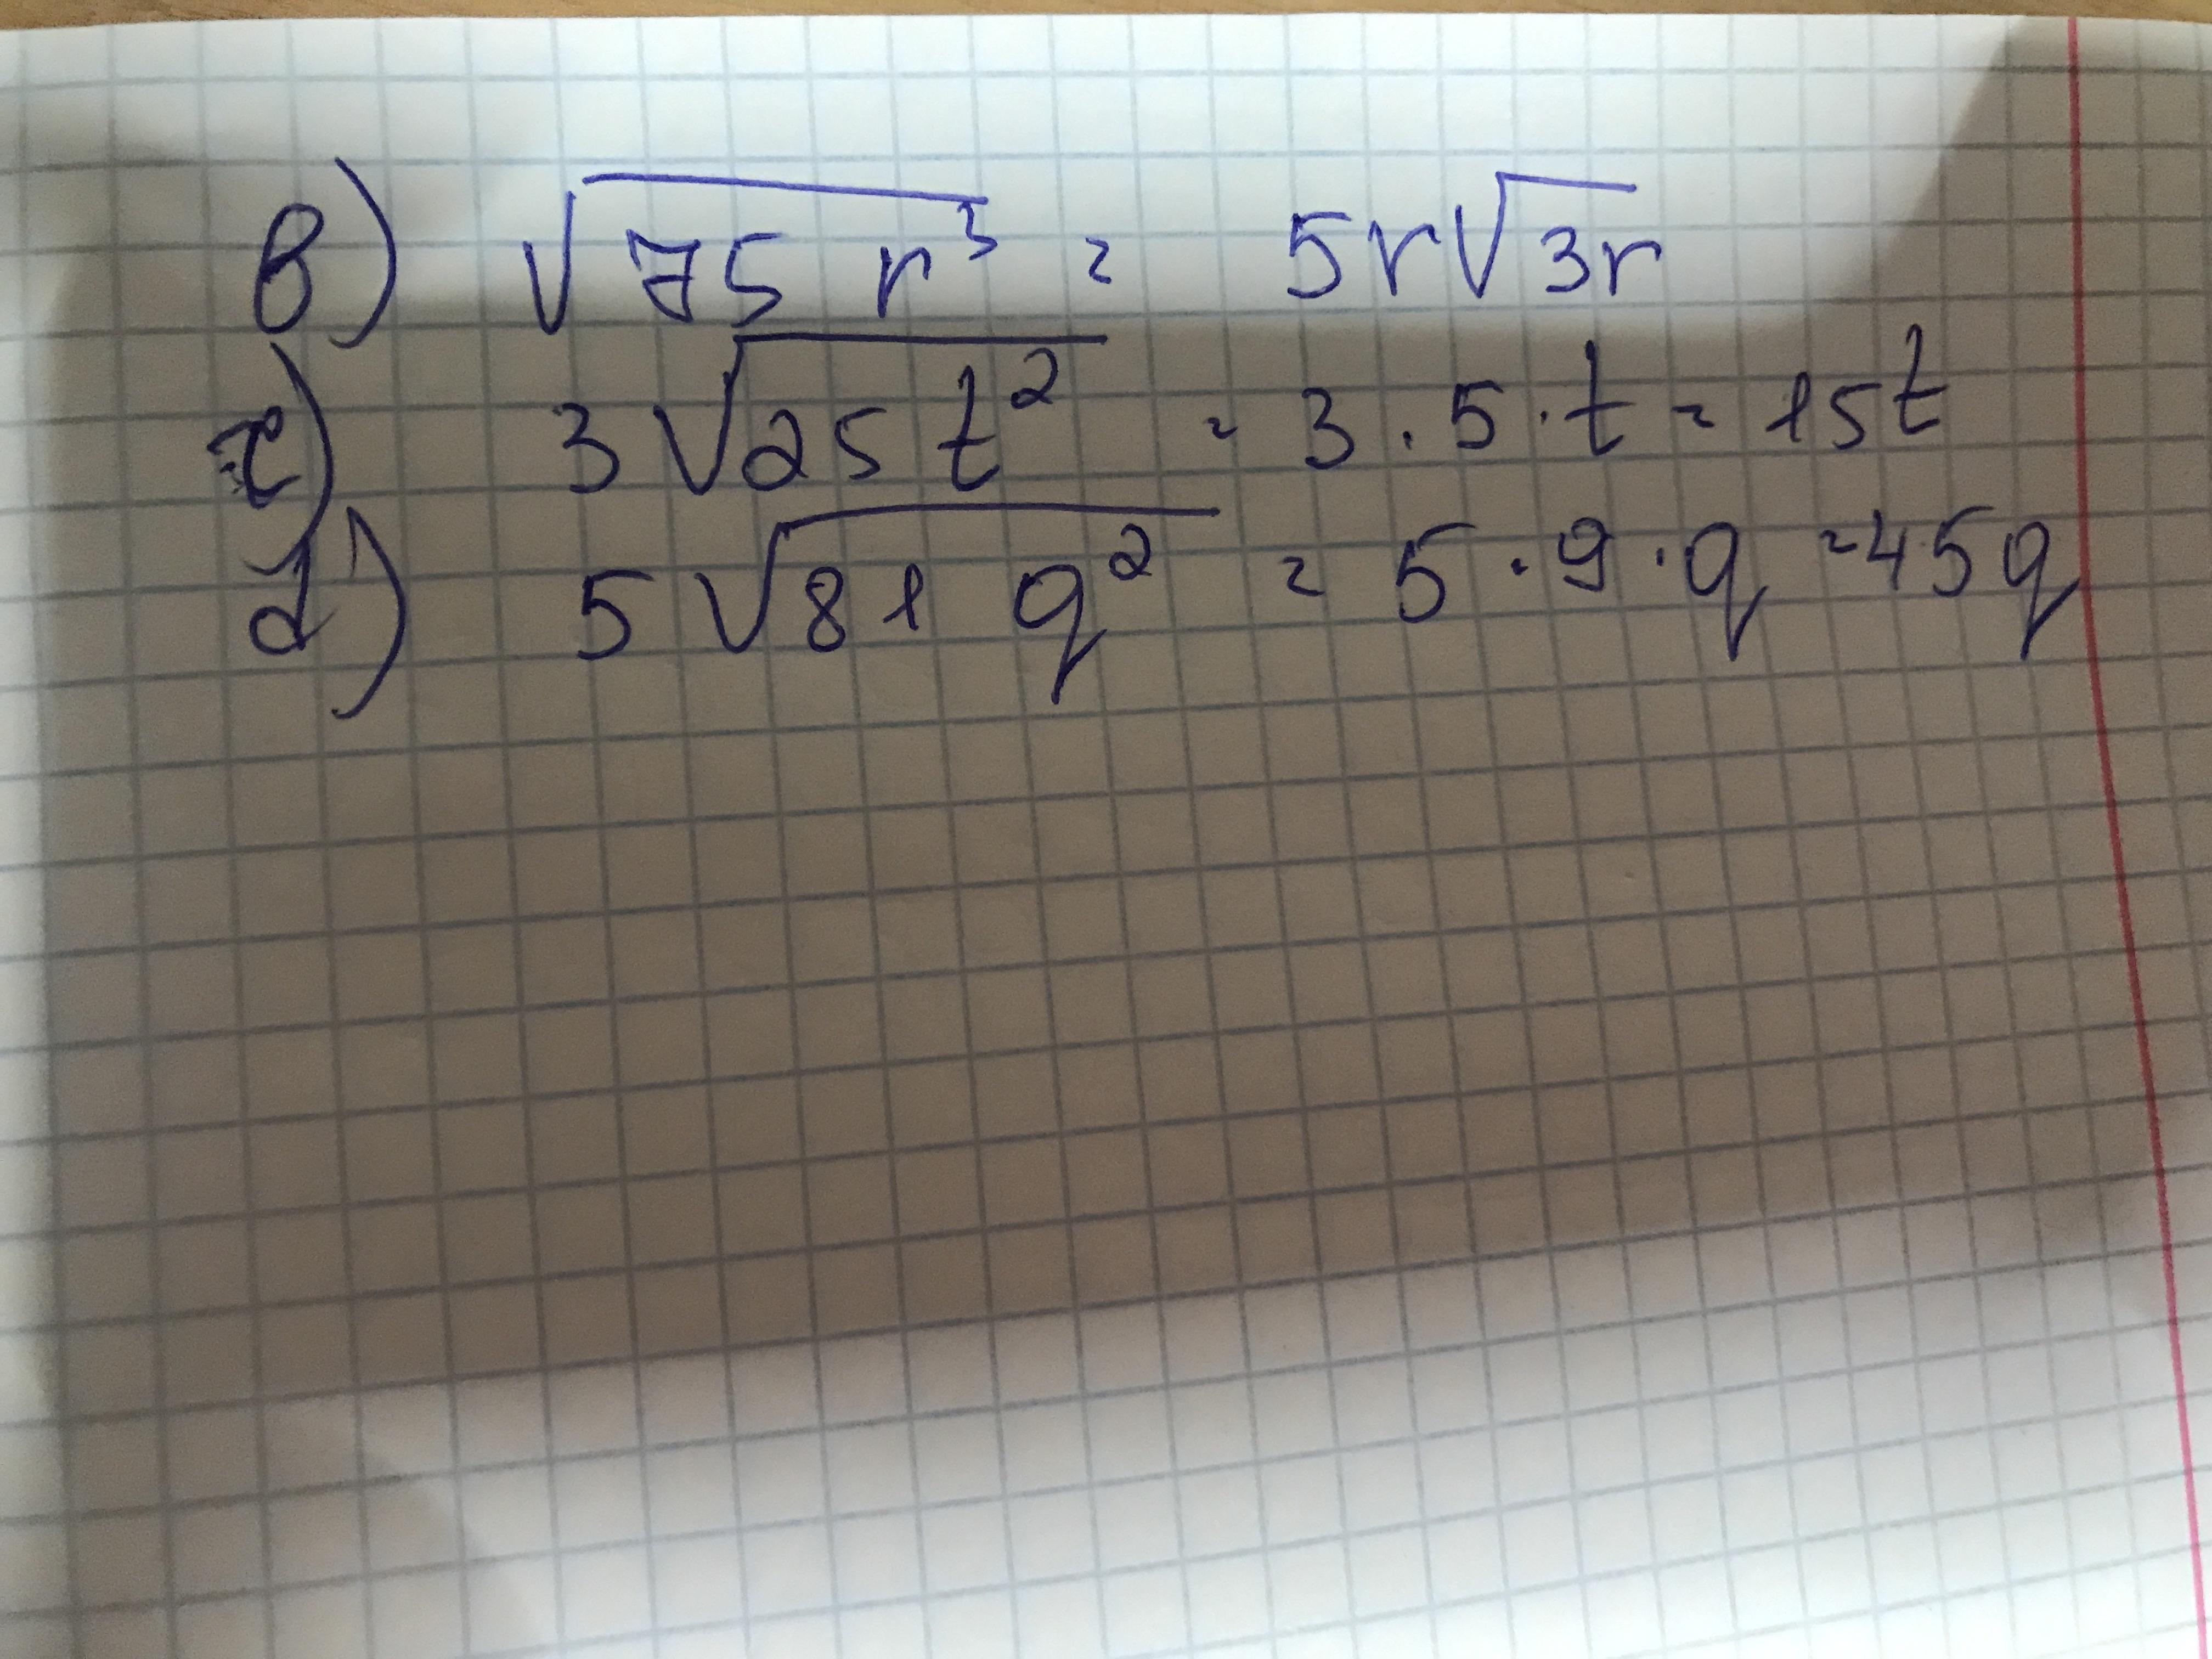 B) √75 r³ = 5r√3r
c) 3√25 t² = 3 · 5 · t = 15t
d) 5√81 q² = 5 · 9 · q = 45q